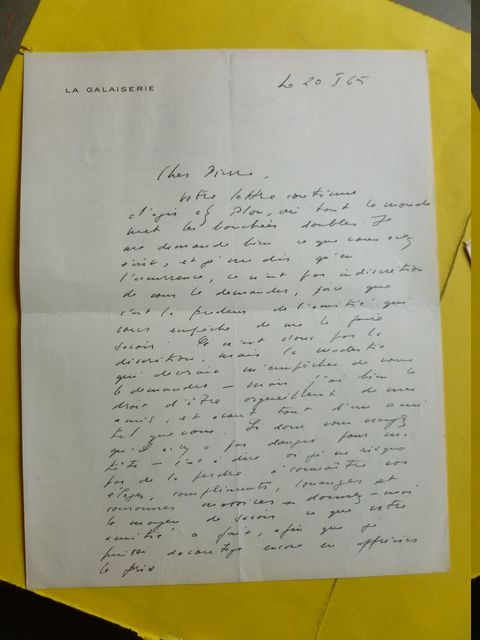 LA GALAISERIE
Le 20 I 65
Cher Pierre,
Votre lettre continue
chez Plon, où tout le monde
met les bouchées doubles. Je
me demande bien ce que vous avez
écrit, et je me dis qu'en
l'occurrence, ce n'est pas indiscrétion
de vous le demander, parce que
c'est la pudeur de l'amitié qui
vous empêche de me le faire
savoir. Ce n'est donc pas la
discrétion, mais la modestie
qui devrait m'empêcher de vous
le demander — mais j'ai bien le
droit d'être orgueilleux de mes
amis, et avant tout d'un ami
tel que vous. Si donc vous
qu'il n'y a pas danger pour ma
tête — c'est à dire si je ne risque
pas de la perdre à connaître vos
éloges, compliments, louanges et
couronnes — donnez-moi
le moyen de savoir ce que votre
amitié a fait, afin que je
puisse davantage encore en apprécier
le prix.